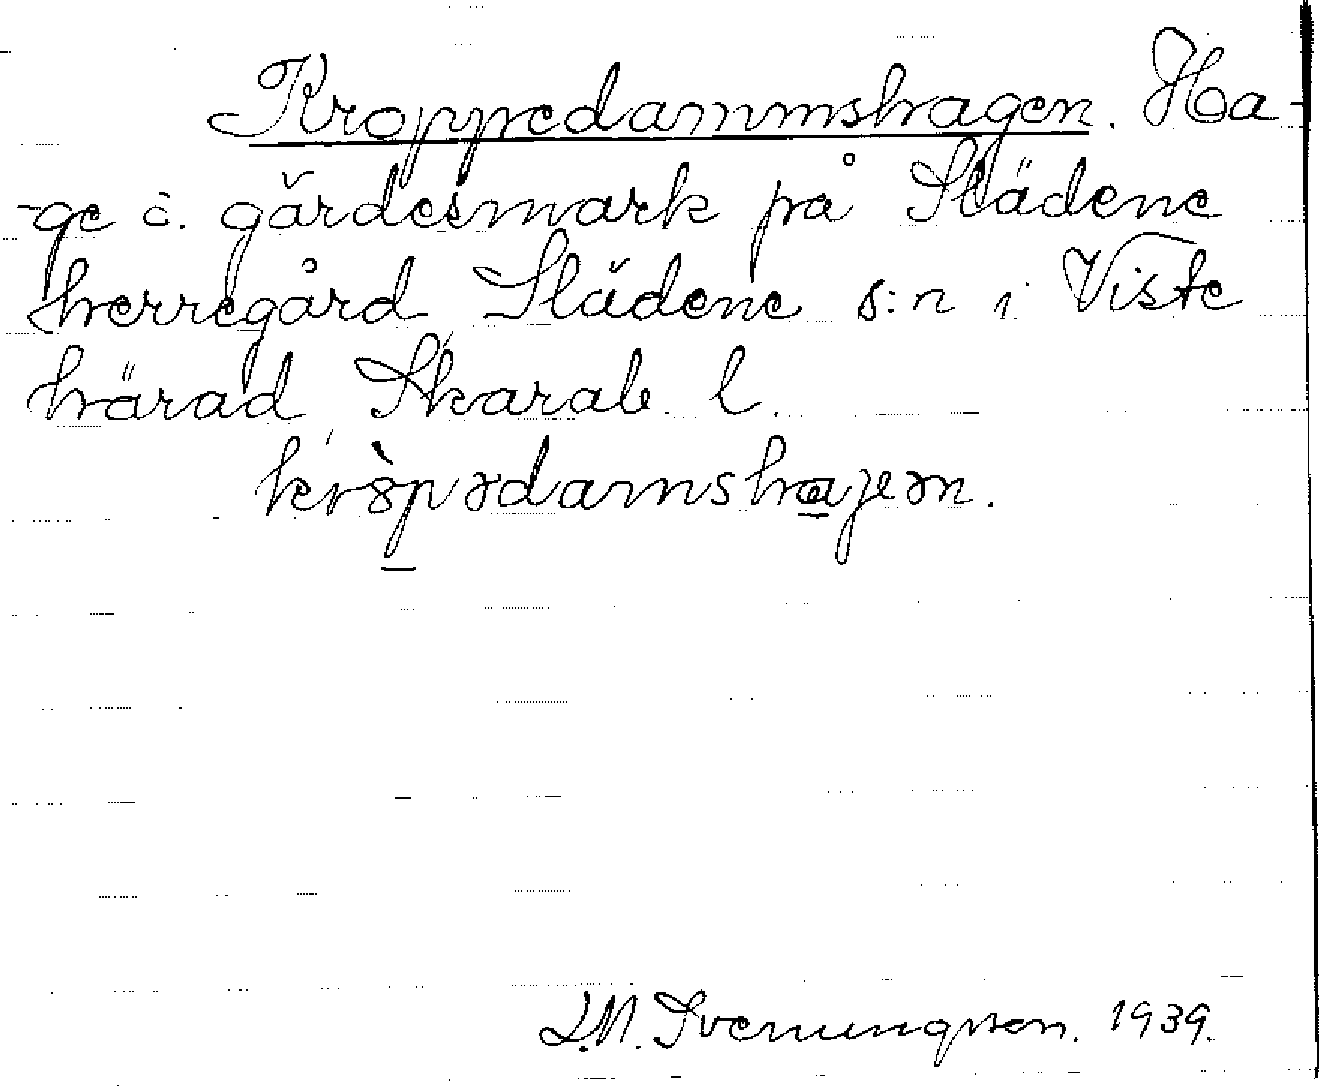 Kroppedammshagen. Ha-
-ge o. gärdesmark på Slädene
herregård Slädene s:n i Viste
härad Skarab. l.
kròpədamshagen.
L.M. Svenungsson. 1939.